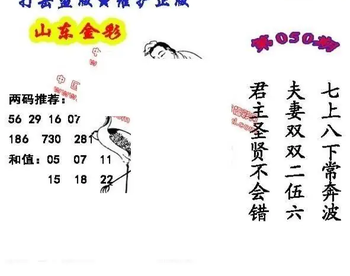 打击盗版责维护正版
山东金彩
第050期
两码推荐:
56 29 16 07
186 730 281
和值: 05 07 11
15 18 22
七上八下常奔波
夫妻双双二伍六
君主圣贤不会错